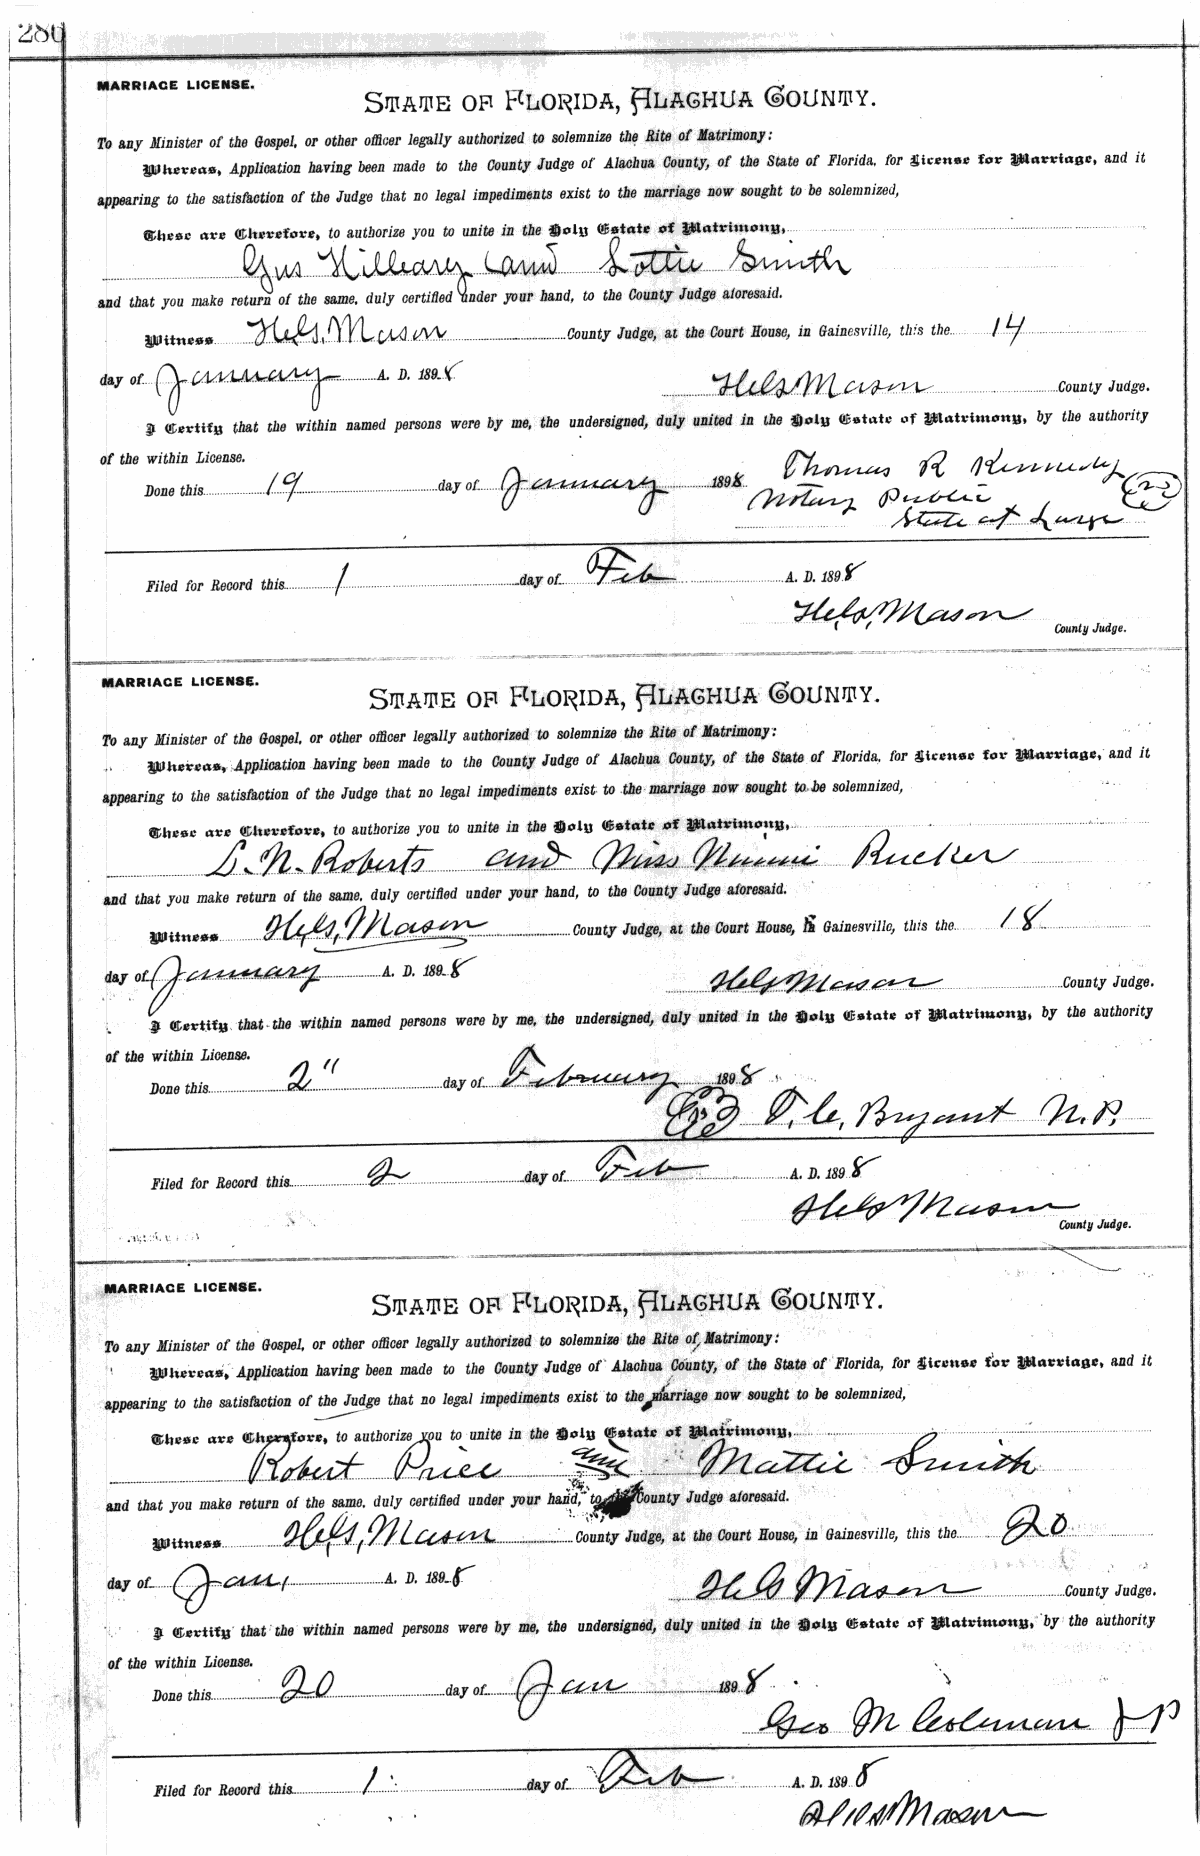 286
MARRIAGE LICENSE.
STATE OF FLORIDA, ALACHUA COUNTY.
To any Minister of the Gospel, or other officer legally authorized to solemnize the Rite of Matrimony:
Whereas, Application having been made to the County Judge of Alachua County, of the State of Florida, for License for Marriage, and it
appearing to the satisfaction of the Judge that no legal impediments exist to the marriage now sought to be solemnized,
These are Therefore, to authorize you to unite in the Holy Estate of Matrimony,
Gus Hilleary and Lottie Smith
and that you make return of the same, duly certified under your hand, to the County Judge aforesaid.
Witness H.G. Mason County Judge, at the Court House, in Gainesville, this the 14
day of January A. D. 1898
H.G. Mason County Judge.
I Certify that the within named persons were by me, the undersigned, duly united in the Holy Estate of Matrimony, by the authority
of the within License.
Done this 19 day of January 1898 Thomas R Kennedy
Notary Public
State at Large
Filed for Record this 1 day of Feb A. D. 1898
H.G. Mason
County Judge.
MARRIAGE LICENSE.
STATE OF FLORIDA, ALACHUA COUNTY.
To any Minister of the Gospel, or other officer legally authorized to solemnize the Rite of Matrimony:
Whereas, Application having been made to the County Judge of Alachua County, of the State of Florida, for License for Marriage, and it
appearing to the satisfaction of the Judge that no legal impediments exist to the marriage now sought to be solemnized,
These are Therefore, to authorize you to unite in the Holy Estate of Matrimony,
L. N. Roberts and Miss Minnie Rucker
and that you make return of the same, duly certified under your hand, to the County Judge aforesaid.
Witness H.G. Mason County Judge, at the Court House, in Gainesville, this the 18
day of January A. D. 1898
H.G. Mason County Judge.
I Certify that the within named persons were by me, the undersigned, duly united in the Holy Estate of Matrimony, by the authority
of the within License.
Done this 2" day of February 1898
T. C. Bryant N.P.
Filed for Record this 2 day of Feb A. D. 1898
H.G. Mason
County Judge.
MARRIAGE LICENSE.
STATE OF FLORIDA, ALACHUA COUNTY.
To any Minister of the Gospel, or other officer legally authorized to solemnize the Rite of Matrimony:
Whereas, Application having been made to the County Judge of Alachua County, of the State of Florida, for License for Marriage, and it
appearing to the satisfaction of the Judge that no legal impediments exist to the marriage now sought to be solemnized,
These are Therefore, to authorize you to unite in the Holy Estate of Matrimony,
Robert Price and Mattie Smith
and that you make return of the same, duly certified under your hand, to County Judge aforesaid.
Witness H.G. Mason County Judge, at the Court House, in Gainesville, this the 20
day of Jan, A. D. 1898
H.G. Mason County Judge.
I Certify that the within named persons were by me, the undersigned, duly united in the Holy Estate of Matrimony, by the authority
of the within License.
Done this 20 day of Jan 1898
Geo M Coleman JP
Filed for Record this 1 day of Feb A. D. 1898
H.G. Mason